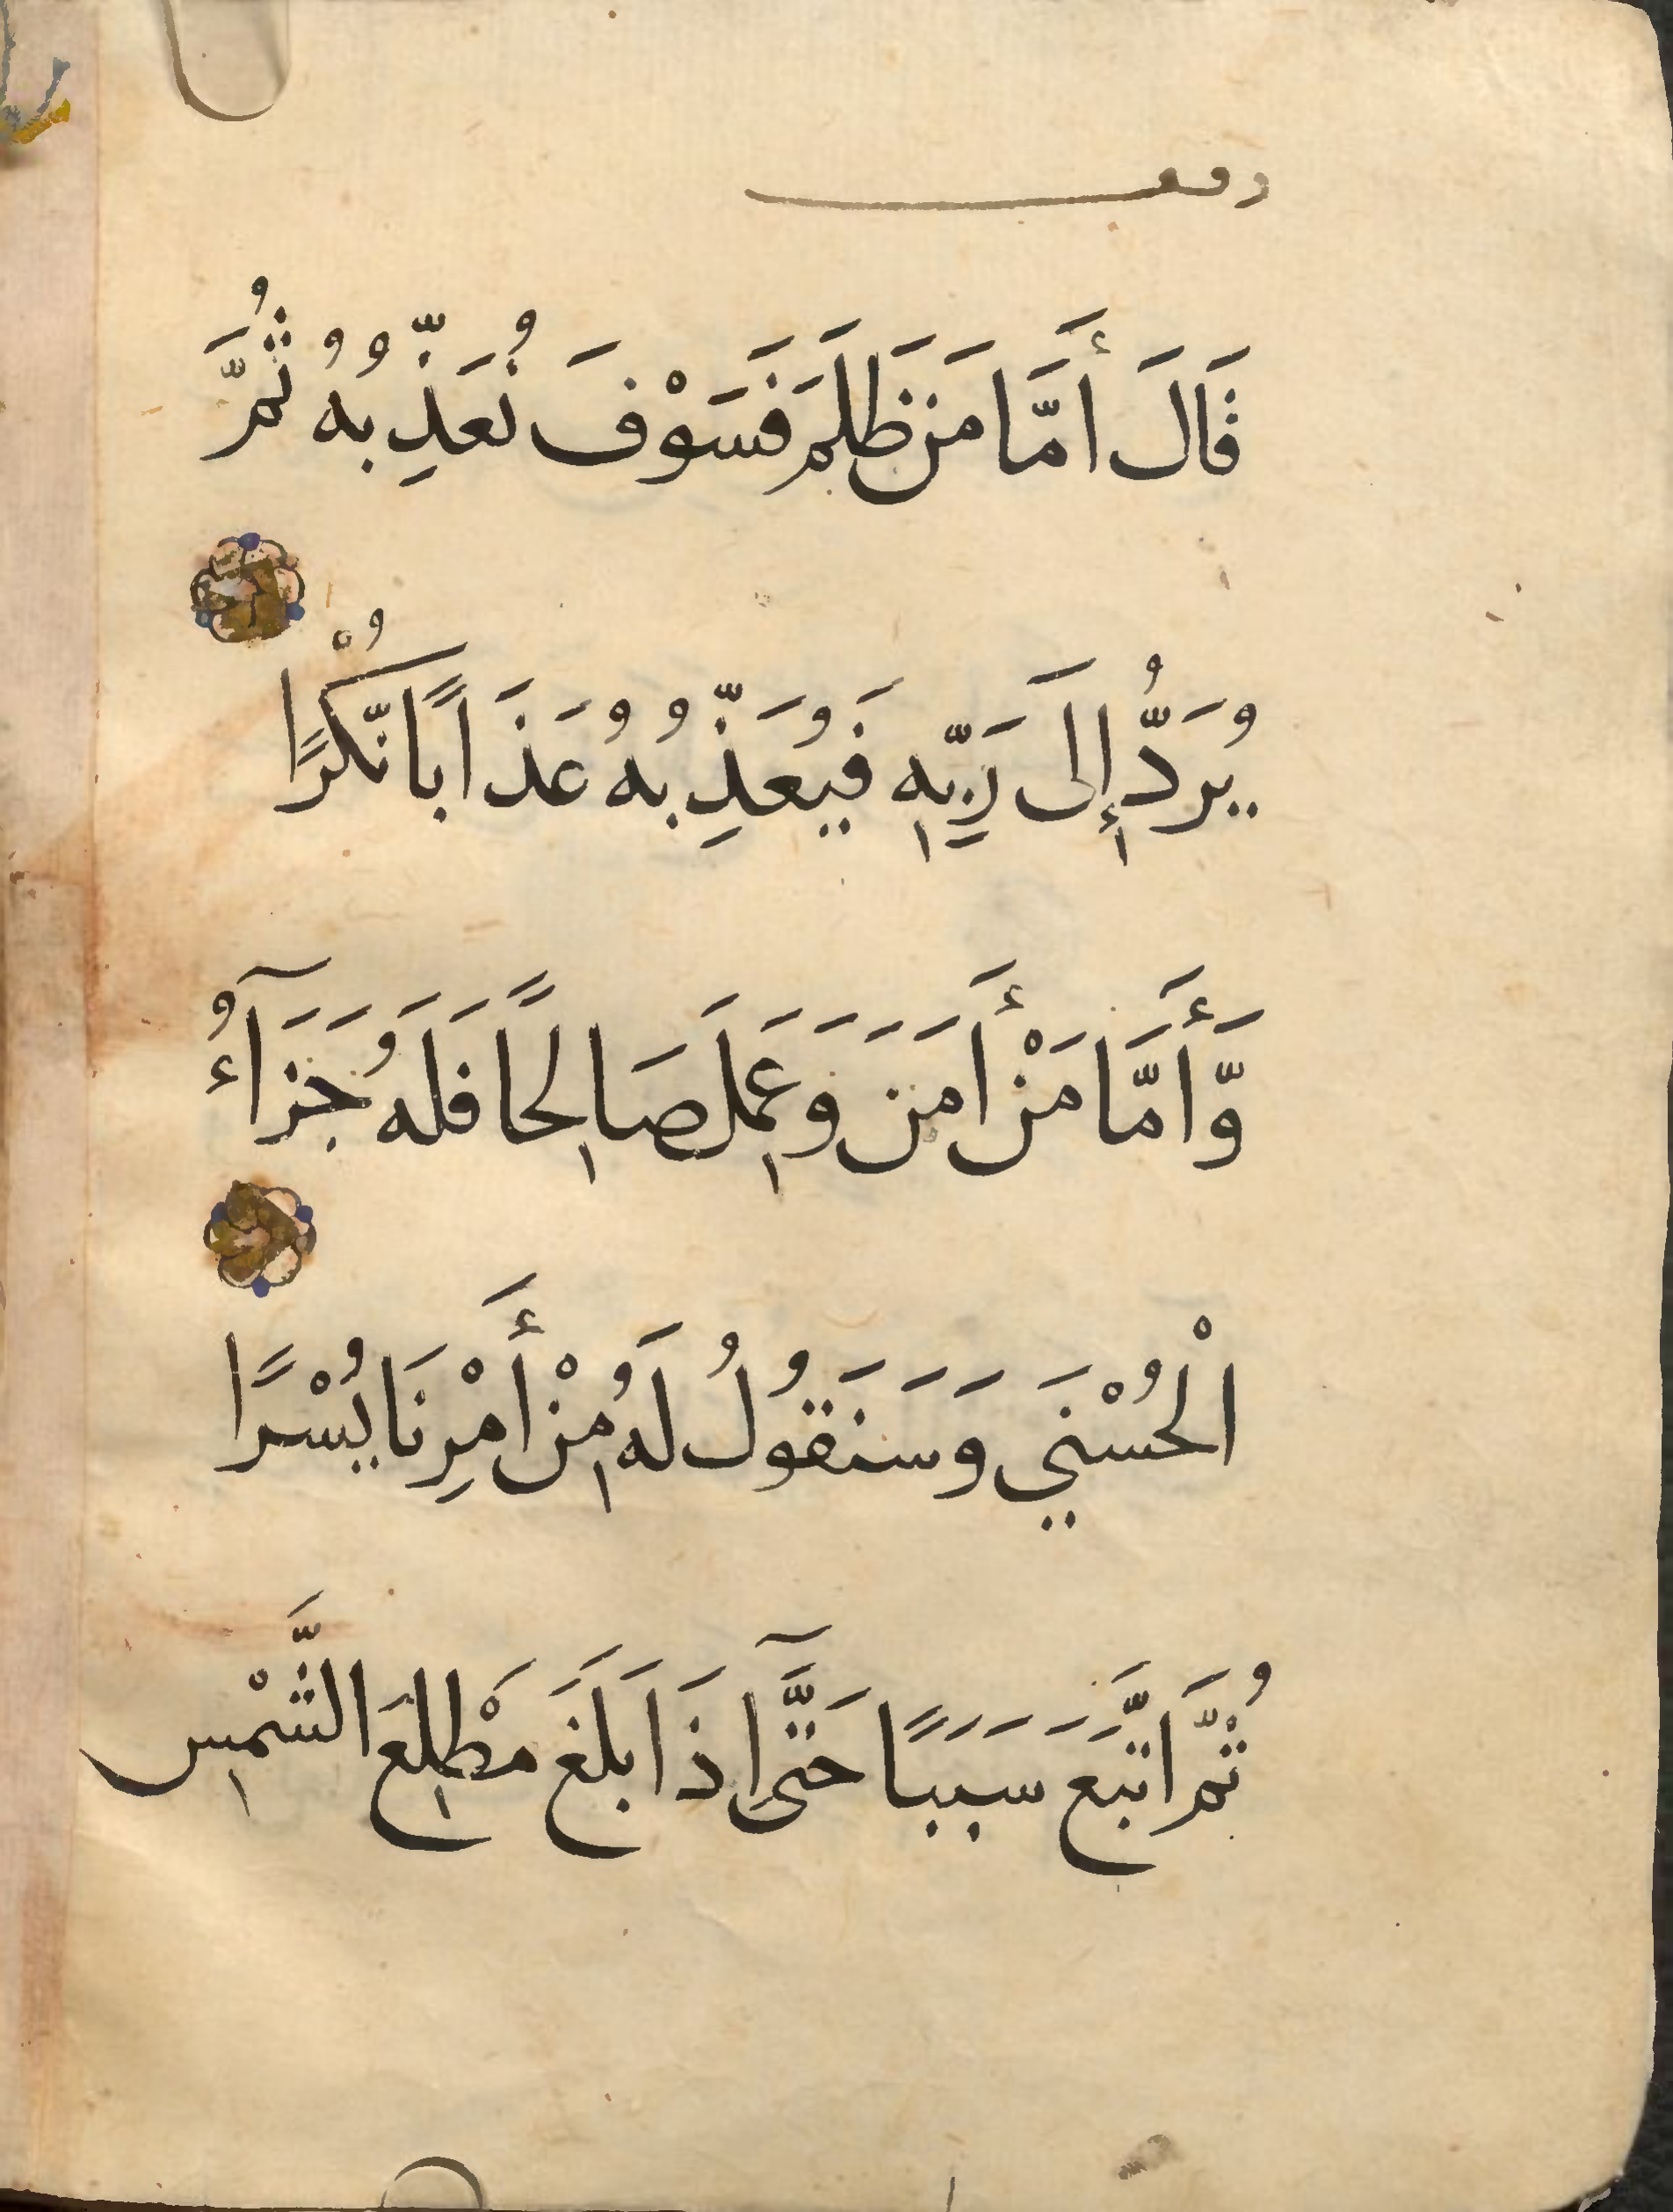 وقف
قَالَ أَمَّا مَن ظَلَمَ فَسَوْفَ نُعَذِّبُهُ ثُمَّ
يُرَدُّ إِلَى رَبِّهِ فَيُعَذِّبُهُ عَذَابًا نُّكْرًا
وَّأَمَّا مَنْ أَمَنَ وَعَمِلَ صَالِحًا فَلَهُ جَزَآءُ
الْحُسْنَي وَسَنَقُولُ لَهُ مِنْ أَمْرِنَا يُسْرًا
ثُمَّ اتَّبَعَ سَبَبًا حَتَّىٓ إِذَا بَلَغَ مَطْلِعَ الشَّمْسِ